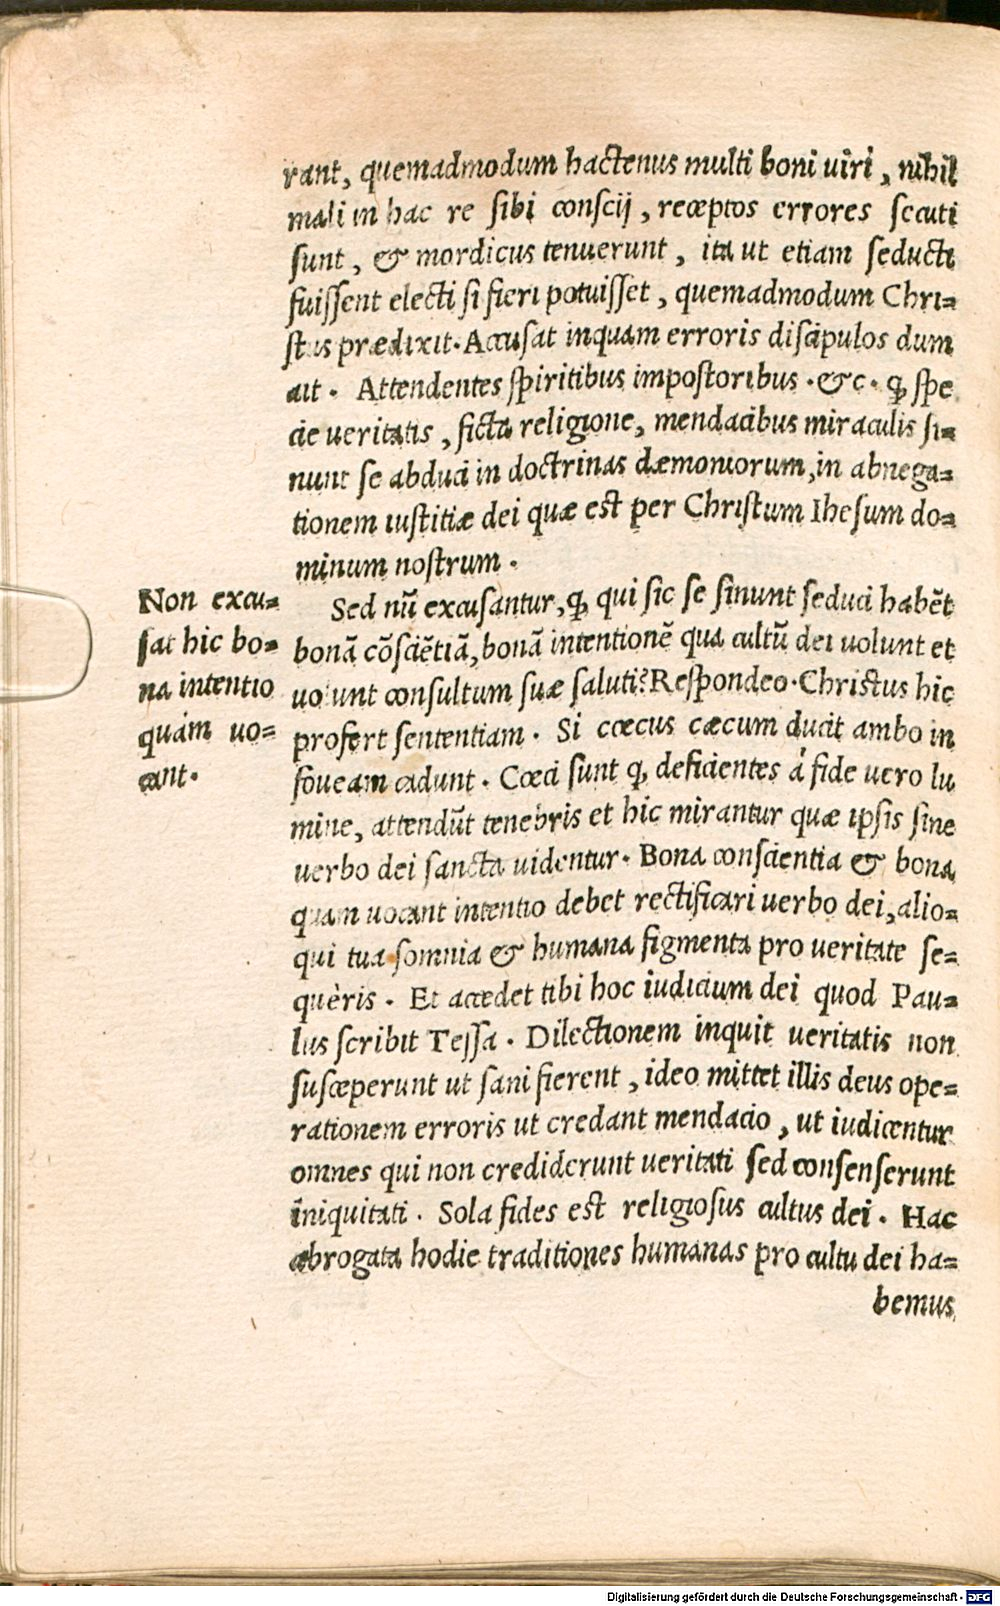 rant, quemadmodum hactenus multi boni uiri, nihil
mali in hac re sibi conscij, receptos errores secuti
sunt, & mordicus tenuerunt, ita ut etiam seducti
fuissent electi si fieri potuisset, quemadmodum Chri=
stus prædixit. Accusat inquam erroris discipulos dum
ait. Attendentes spiritibus impostoribus. &c. ꝙ spe
cie ueritatis, ficta religione, mendacibus miraculis si=
nunt se abduci in doctrinas dæmoniorum, in abnega=
tionem iustitiæ dei quæ est per Christum Ihesum do=
minum nostrum.
Non excu=
sat hic bo=
na intentio
quàm uo=
cant.
Sed nũ excusantur, ꝙ qui sic se sinunt seduci habẽt
bonã cõsciẽtiã, bonã intentionẽ qua cultũ dei uolunt et
uolunt consultum suæ saluti? Respondeo. Christus hic
profert sententiam. Si cœcus cæcum ducit ambo in
foueam cadunt. Cœci sunt ꝙ deficientes á fide uero lu
mine, attendũt tenebris et hic mirantur quæ ipsis sine
uerbo dei sancta uidentur. Bona conscientia & bona
quam uocant intentio debet rectificari uerbo dei, alio=
qui tua somnia & humana figmenta pro ueritate se=
quèris. Et accedet tibi hoc iudicium dei quod Pau=
lus scribit Tessa. Dilectionem inquit ueritatis non
susceperunt ut sani fierent, ideo mittet illis deus ope=
rationem erroris ut credant mendacio, ut iudicentur
omnes qui non crediderunt ueritati sed consenserunt
iniquitati. Sola fides est religiosus cultus dei. Hac
abrogata hodie traditiones humanas pro cultu dei ha=
bemus
Digitalisierung gefördert durch die Deutsche Forschungsgemeinschaft - DFG